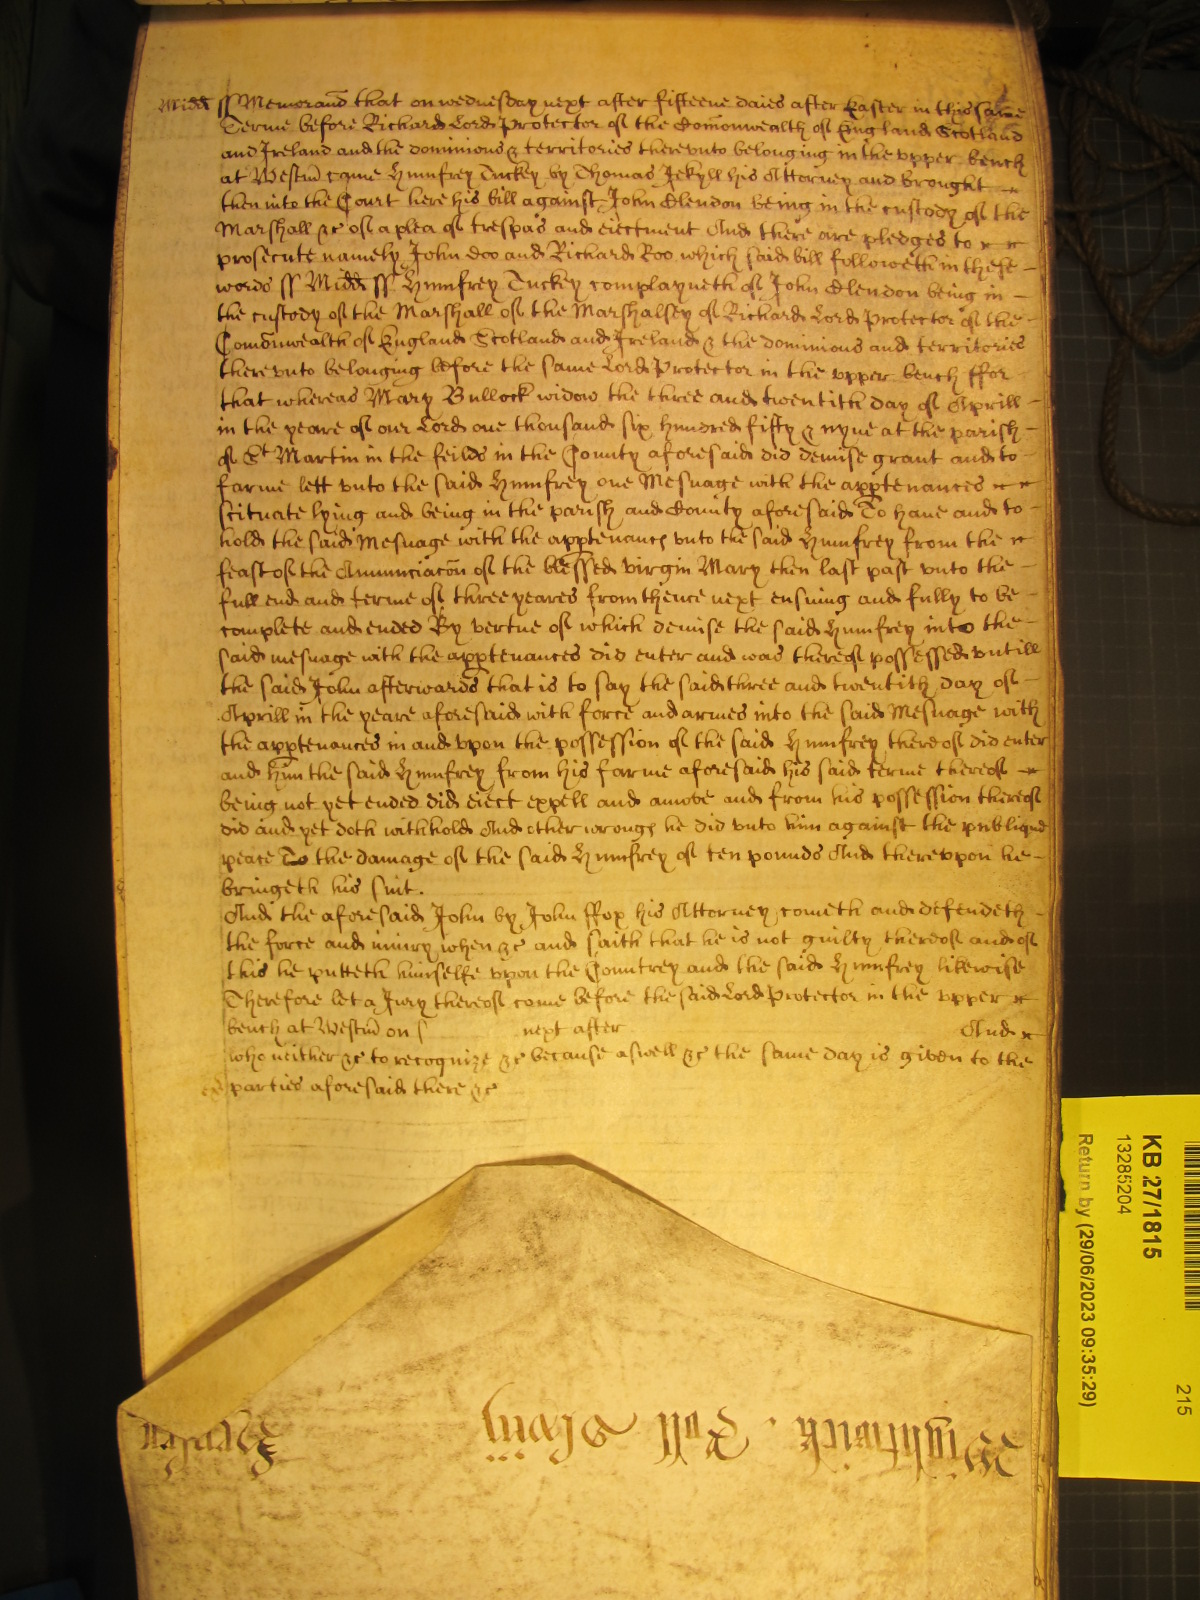 Midd ss Memorand that on wednesday next after fifteene daies after Easter in this same
Terme before Richard Lord Protector of the Comonwealth of England Scotland
and Ireland and the dominions & territories therevnto belonging in the vpper bench
at Westm came Humfrey Tuckey by Thomas Jekyll his Attorney and brought
then into the Court here his bill against John Clendon being in the custody of the
Marshall &c of a plea of trespas and eiectment And there are pledges to
prosecute namely John doo and Richard Roo which said bill followeth in these
words ss Midd ss Humfrey Tuckey complayneth of John Clendon being in
the custody of the Marshall of the Marshalsey of Richard Lord Protector of the
Comonwealth of England Scotland and Ireland & the dominions and territories
therevnto belonging before the same Lord Protector in the vpper bench ffor
that whereas Mary Bullock widow the three and twentith day of Aprill
in the yeare of our Lord one thousand six hundred fifty & nyne at the parish
of St Martin in the feilds in the County aforesaid did demise grant and to
farme lett vnto the said Humfrey one Mesuage with the apptenances
scituate lying and being in the parish and County aforesaid To haue and to
hold the said Mesuage with the apptenanc vnto the said Humfrey from the
feast of the Annunciacon of the blessed virgin Mary then last past vnto the
full end and terme of three yeares from thence next ensuing and fully to be
complete and ended By vertue of which demise the said Humfrey into the
said mesuage with the apptenances did enter and was thereof possessed vntill
the said John afterwards that is to say the said three and twentith day of
Aprill in the yeare aforesaid with force and armes into the said Mesuage with
the apptenances in and vpon the possession of the said Humfrey thereof did enter
and him the said Humfrey from his farme aforesaid his said terme thereof
being not yet ended did eiect expell and amove and from his possession thereof
did and yet doth withhold And other wrongs he did vnto him against the publique
peace To the damage of the said Humfrey of ten pounds And therevpon he
bringeth his suit.
And the aforesaid John by John ffox his Attorney cometh and defendeth
the force and iniury when &c and saith that he is not guilty thereof and of
this he putteth himselfe vpon the Countrey and the said Humfrey likewise
Therefore let a Jury thereof come before the said Lord Protector in the vpper
bench at Westm on next after And
who neither &c to recognize &c because aswell &c the same day is given to the
parties aforesaid there &c
Wightwick. Roll Skory iiij
KB 27/1815
13285204
Return by (29/06/2023 09:35:29)
215